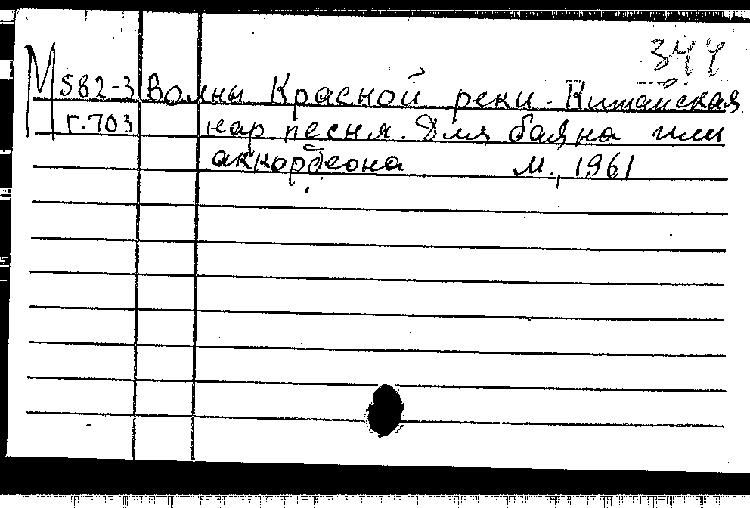 344
М 582-3 Волны Красной реки. Китайская
г.703 нар. песня. Для баяна или
аккордеона М., 1961